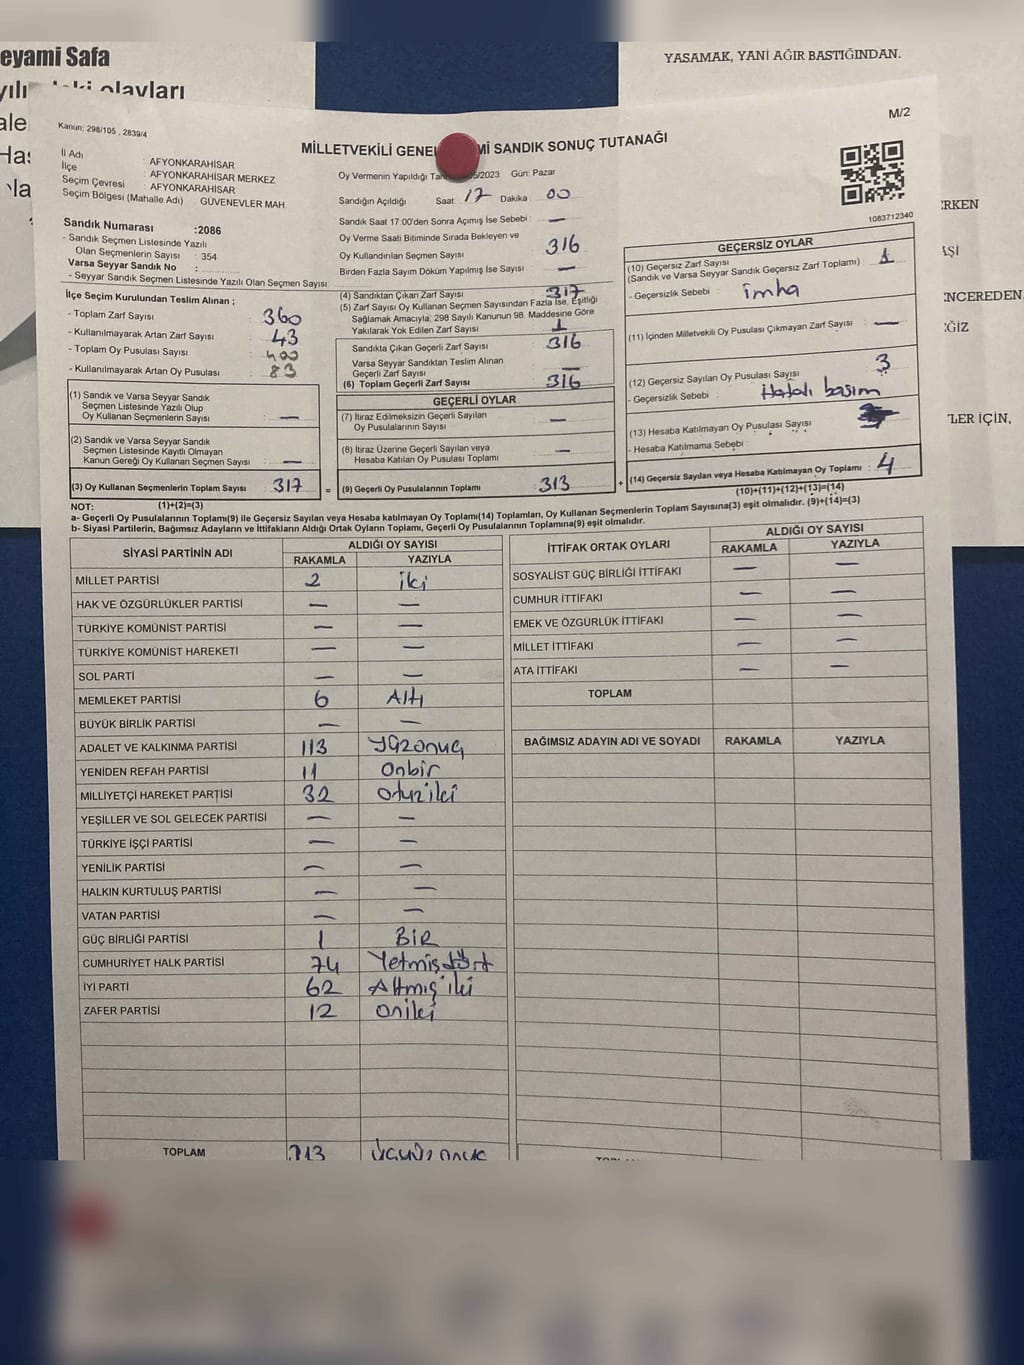 eyami Safa
olayları
YASAMAK, YANİ AĞIR BASTIĞINDAN.
Kanun: 298/105 , 2839/4
M/2
MİLLETVEKİLİ GENEL Mİ SANDIK SONUÇ TUTANAĞI
İl Adı : AFYONKARAHİSAR
İlçe : AFYONKARAHİSAR MERKEZ
Seçim Çevresi : AFYONKARAHİSAR
Seçim Bölgesi (Mahalle Adı) GÜVENEVLER MAH.
Oy Vermenin Yapıldığı /2023 Gün: Pazar
Sandığın Açıldığı Saat 17 Dakika 00
Sandık Saat 17:00'den Sonra Açımış İse Sebebi : —
Oy Verme Saati Bitiminde Sırada Bekleyen ve
Oy Kullandırılan Seçmen Sayısı 316
Birden Fazla Sayım Döküm Yapılmış İse Sayısı —
Sandık Numarası :2086
- Sandık Seçmen Listesinde Yazılı
Olan Seçmenlerin Sayısı : 354
Varsa Seyyar Sandık No :
- Seyyar Sandık Seçmen Listesinde Yazılı Olan Seçmen Sayısı :
1083712340
İlçe Seçim Kurulundan Teslim Alınan ;
- Toplam Zarf Sayısı : 360
- Kullanılmayarak Artan Zarf Sayısı : 43
- Toplam Oy Pusulası Sayısı : 400
- Kullanılmayarak Artan Oy Pusulası : 83
(1) Sandık ve Varsa Seyyar Sandık
Seçmen Listesinde Yazılı Olup
Oy Kullanan Seçmenlerin Sayısı : —
(2) Sandık ve Varsa Seyyar Sandık
Seçmen Listesinde Kayıtlı Olmayan
Kanun Gereği Oy Kullanan Seçmen Sayısı : —
(3) Oy Kullanan Seçmenlerin Toplam Sayısı : 317
(1)+(2)=(3)
(4) Sandıktan Çıkan Zarf Sayısı : 317
(5) Zarf Sayısı Oy Kullanan Seçmen Sayısından Fazla İse, Eşitliği
Sağlamak Amacıyla; 298 Sayılı Kanunun 98. Maddesine Göre
Yakılarak Yok Edilen Zarf Sayısı : 1
Sandıkta Çıkan Geçerli Zarf Sayısı : 316
Varsa Seyyar Sandıktan Teslim Alınan
Geçerli Zarf Sayısı : —
(6) Toplam Geçerli Zarf Sayısı : 316
GEÇERLİ OYLAR
(7) İtiraz Edilmeksizin Geçerli Sayılan
Oy Pusulalarının Sayısı : —
(8) İtiraz Üzerine Geçerli Sayılan veya
Hesaba Katılan Oy Pusulası Toplamı : —
= (9) Geçerli Oy Pusulalarının Toplamı : 313
GEÇERSİZ OYLAR
(10) Geçersiz Zarf Sayısı
(Sandık ve Varsa Seyyar Sandık Geçersiz Zarf Toplamı) : 1
- Geçersizlik Sebebi : imha
(11) İçinden Milletvekili Oy Pusulası Çıkmayan Zarf Sayısı : —
(12) Geçersiz Sayılan Oy Pusulası Sayısı : 3
- Geçersizlik Sebebi : Hatalı basım
(13) Hesaba Katılmayan Oy Pusulası Sayısı :
- Hesaba Katılmama Sebebi :
+ (14) Geçersiz Sayılan veya Hesaba Katılmayan Oy Toplamı : 4
(10)+(11)+(12)+(13)=(14)
NOT:
a- Geçerli Oy Pusulalarının Toplamı(9) ile Geçersiz Sayılan veya Hesaba katılmayan Oy Toplamı(14) Toplamları, Oy Kullanan Seçmenlerin Toplam Sayısına(3) eşit olmalıdır. (9)+(14)=(3)
b- Siyasi Partilerin, Bağımsız Adayların ve İttifakların Aldığı Ortak Oyların Toplamı, Geçerli Oy Pusulalarının Toplamına(9) eşit olmalıdır.
SİYASİ PARTİNİN ADI ALDIĞI OY SAYISI
RAKAMLA YAZIYLA
MİLLET PARTİSİ 2 iki
HAK VE ÖZGÜRLÜKLER PARTİSİ — —
TÜRKİYE KOMÜNİST PARTİSİ — —
TÜRKİYE KOMÜNİST HAREKETİ — —
SOL PARTİ — —
MEMLEKET PARTİSİ 6 Altı
BÜYÜK BİRLİK PARTİSİ — —
ADALET VE KALKINMA PARTİSİ 113 yüzonüç
YENİDEN REFAH PARTİSİ 11 Onbir
MİLLİYETÇİ HAREKET PARTİSİ 32 otuziki
YEŞİLLER VE SOL GELECEK PARTİSİ — —
TÜRKİYE İŞÇİ PARTİSİ — —
YENİLİK PARTİSİ — —
HALKIN KURTULUŞ PARTİSİ — —
VATAN PARTİSİ — —
GÜÇ BİRLİĞİ PARTİSİ 1 BİR
CUMHURİYET HALK PARTİSİ 74 Yetmişdört
İYİ PARTİ 62 Altmışiki
ZAFER PARTİSİ 12 oniki
TOPLAM 313 üçyüzonüç
İTTİFAK ORTAK OYLARI ALDIĞI OY SAYISI
RAKAMLA YAZIYLA
SOSYALİST GÜÇ BİRLİĞİ İTTİFAKI — —
CUMHUR İTTİFAKI — —
EMEK VE ÖZGÜRLÜK İTTİFAKI — —
MİLLET İTTİFAKI — —
ATA İTTİFAKI — —
TOPLAM
BAĞIMSIZ ADAYIN ADI VE SOYADI RAKAMLA YAZIYLA
RKEN
NCEREDEN,
ĞİZ
LER İÇİN,